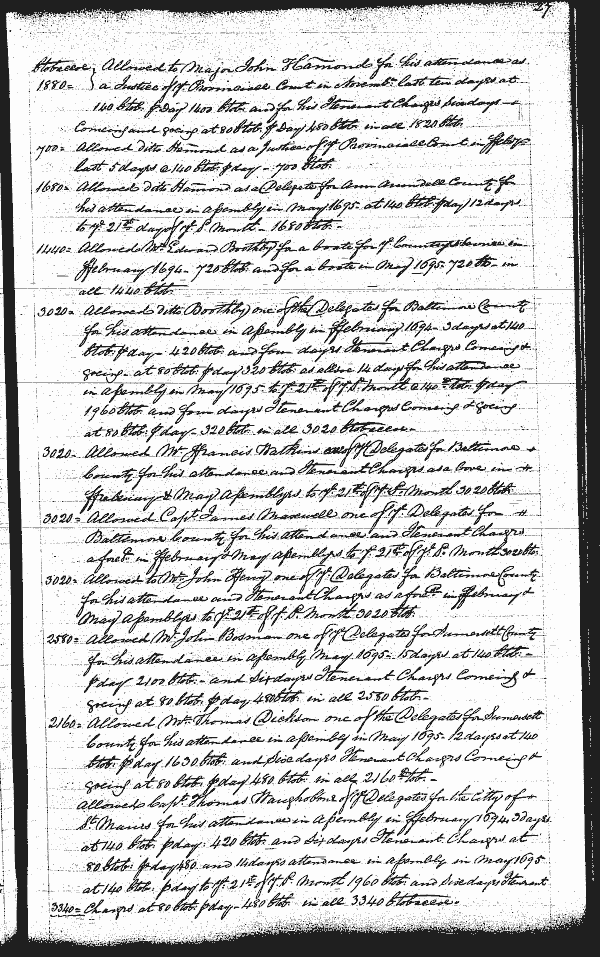 27
lbtobaccoe } Allowed to Major John Hamond for his attendance as
1880= a Justice of ye Provinciall Court in Novembr. last ten dayes at
140 lbtob. p Day 1400 lbtob. and for his Itenerant Charges sixdays
Comeing and goeing at 80 lbtob. p Day 480 lbtob. in all 1820 lbtob.
700= Allowed ditto Hamond as a Justice of ye Provinciall Court in ffebry
last 5 dayes a 140 lbtob. p day - 700 lbtob.
1680= Allowed ditto Hamond as a Delegate for Ann Arundell County for
his attendance in assembly in May 1695. at 140 lbtob. p day 12 dayes
to ye 21st dayes of ye sd. Month - 1680 lbtob. -
1440= Allowed Mr. Edward Boothby for a boate for ye Countrys Service in
ffebruary 1694 - 720 lbtob. and for a boate in May 1695. 720 lb - in
all 1440 lbtob.
3020= Allowed ditto Boothby one of the Delegates for Baltimore County
for his attendance in Assembly in ffebruary 1694 - 3 dayes at 140
lbtob. p day - 420 lbtob. and four dayes Itenerant Charges Comeing &
goeing - at 80 lbtob. p day 320 lbtob. as allsoe 14 dayes for his attendance
in assembly in May 1695 to ye 21st of ye sd. Month a 140 lbtob. p day
1960 lbtob. and four dayes Itenerant Charges Comeing & goeing
at 80 lbtob. p day - 320 lbtob. in all 3020 lbtobaccoe.
3020- Allowed Mr. ffrancis Watkins one of ye Delegates for Baltimore
County for his attendance and Itenerant Charges as above in
ffebruary & May Assemblyes to ye 21th of ye sd. Month 3020 lbtob.
3020= Allowed Capt. James Maxwell one of ye Delegates for
Baltimore County for his attendance and Itenerant Charges
aforesd. in ffebruary & May assemblyes to ye 21st of ye sd. Month 3020 lbtob.
3020= Allowed to Mr. John fferry one of ye Delegates for Baltimore County
for his attendance and Itenerant Charges as aforesd. in ffebruary &
May assemblyes to ye 21st of ye sd. Month 3020 lbtob.
2580= Allowed Mr. John Bosman one of ye Delegates for Sumersett County
for his attendance in assembly May 1695 - 15 dayes at 140 lbtob. -
p day 2100 lbtob. - and six dayes Itenerant Charges Comeing &
goeing at 80 lbtob. p day 480 lbtob. in all 2580 lbtob. -
2160= Allowed Mr. Thomas Dickson one of the Delegates for Sumersett
County for his attendance in assembly in May 1695. 12 dayes at 140
lbtob. p day 1630 lbtob. and Sixe dayes Itenerant Charges Comeing &
goeing at 80 lbtob. p day 480 lbtob. in all 2160 lbtob. -
Allowed Capt. Thomas Waughobone of ye Delegates for the Citty of
St. Maries for his attendance in Assembly in ffebruary 1694, 3 dayes
at 140 lbtob. p day. 420 lbtob. and six dayes Itenerant Charges at
80 lbtob. p day 480. and 14 dayes attendance in assembly in May 1695
at 140 lbtob. p day to ye 21st of ye sd. Month 1960 lbtob. and Sixe dayes Itenerant
3340= Charges at 80 lbtob. p day - 480 lbtob. in all 3340 lbtobaccoe.